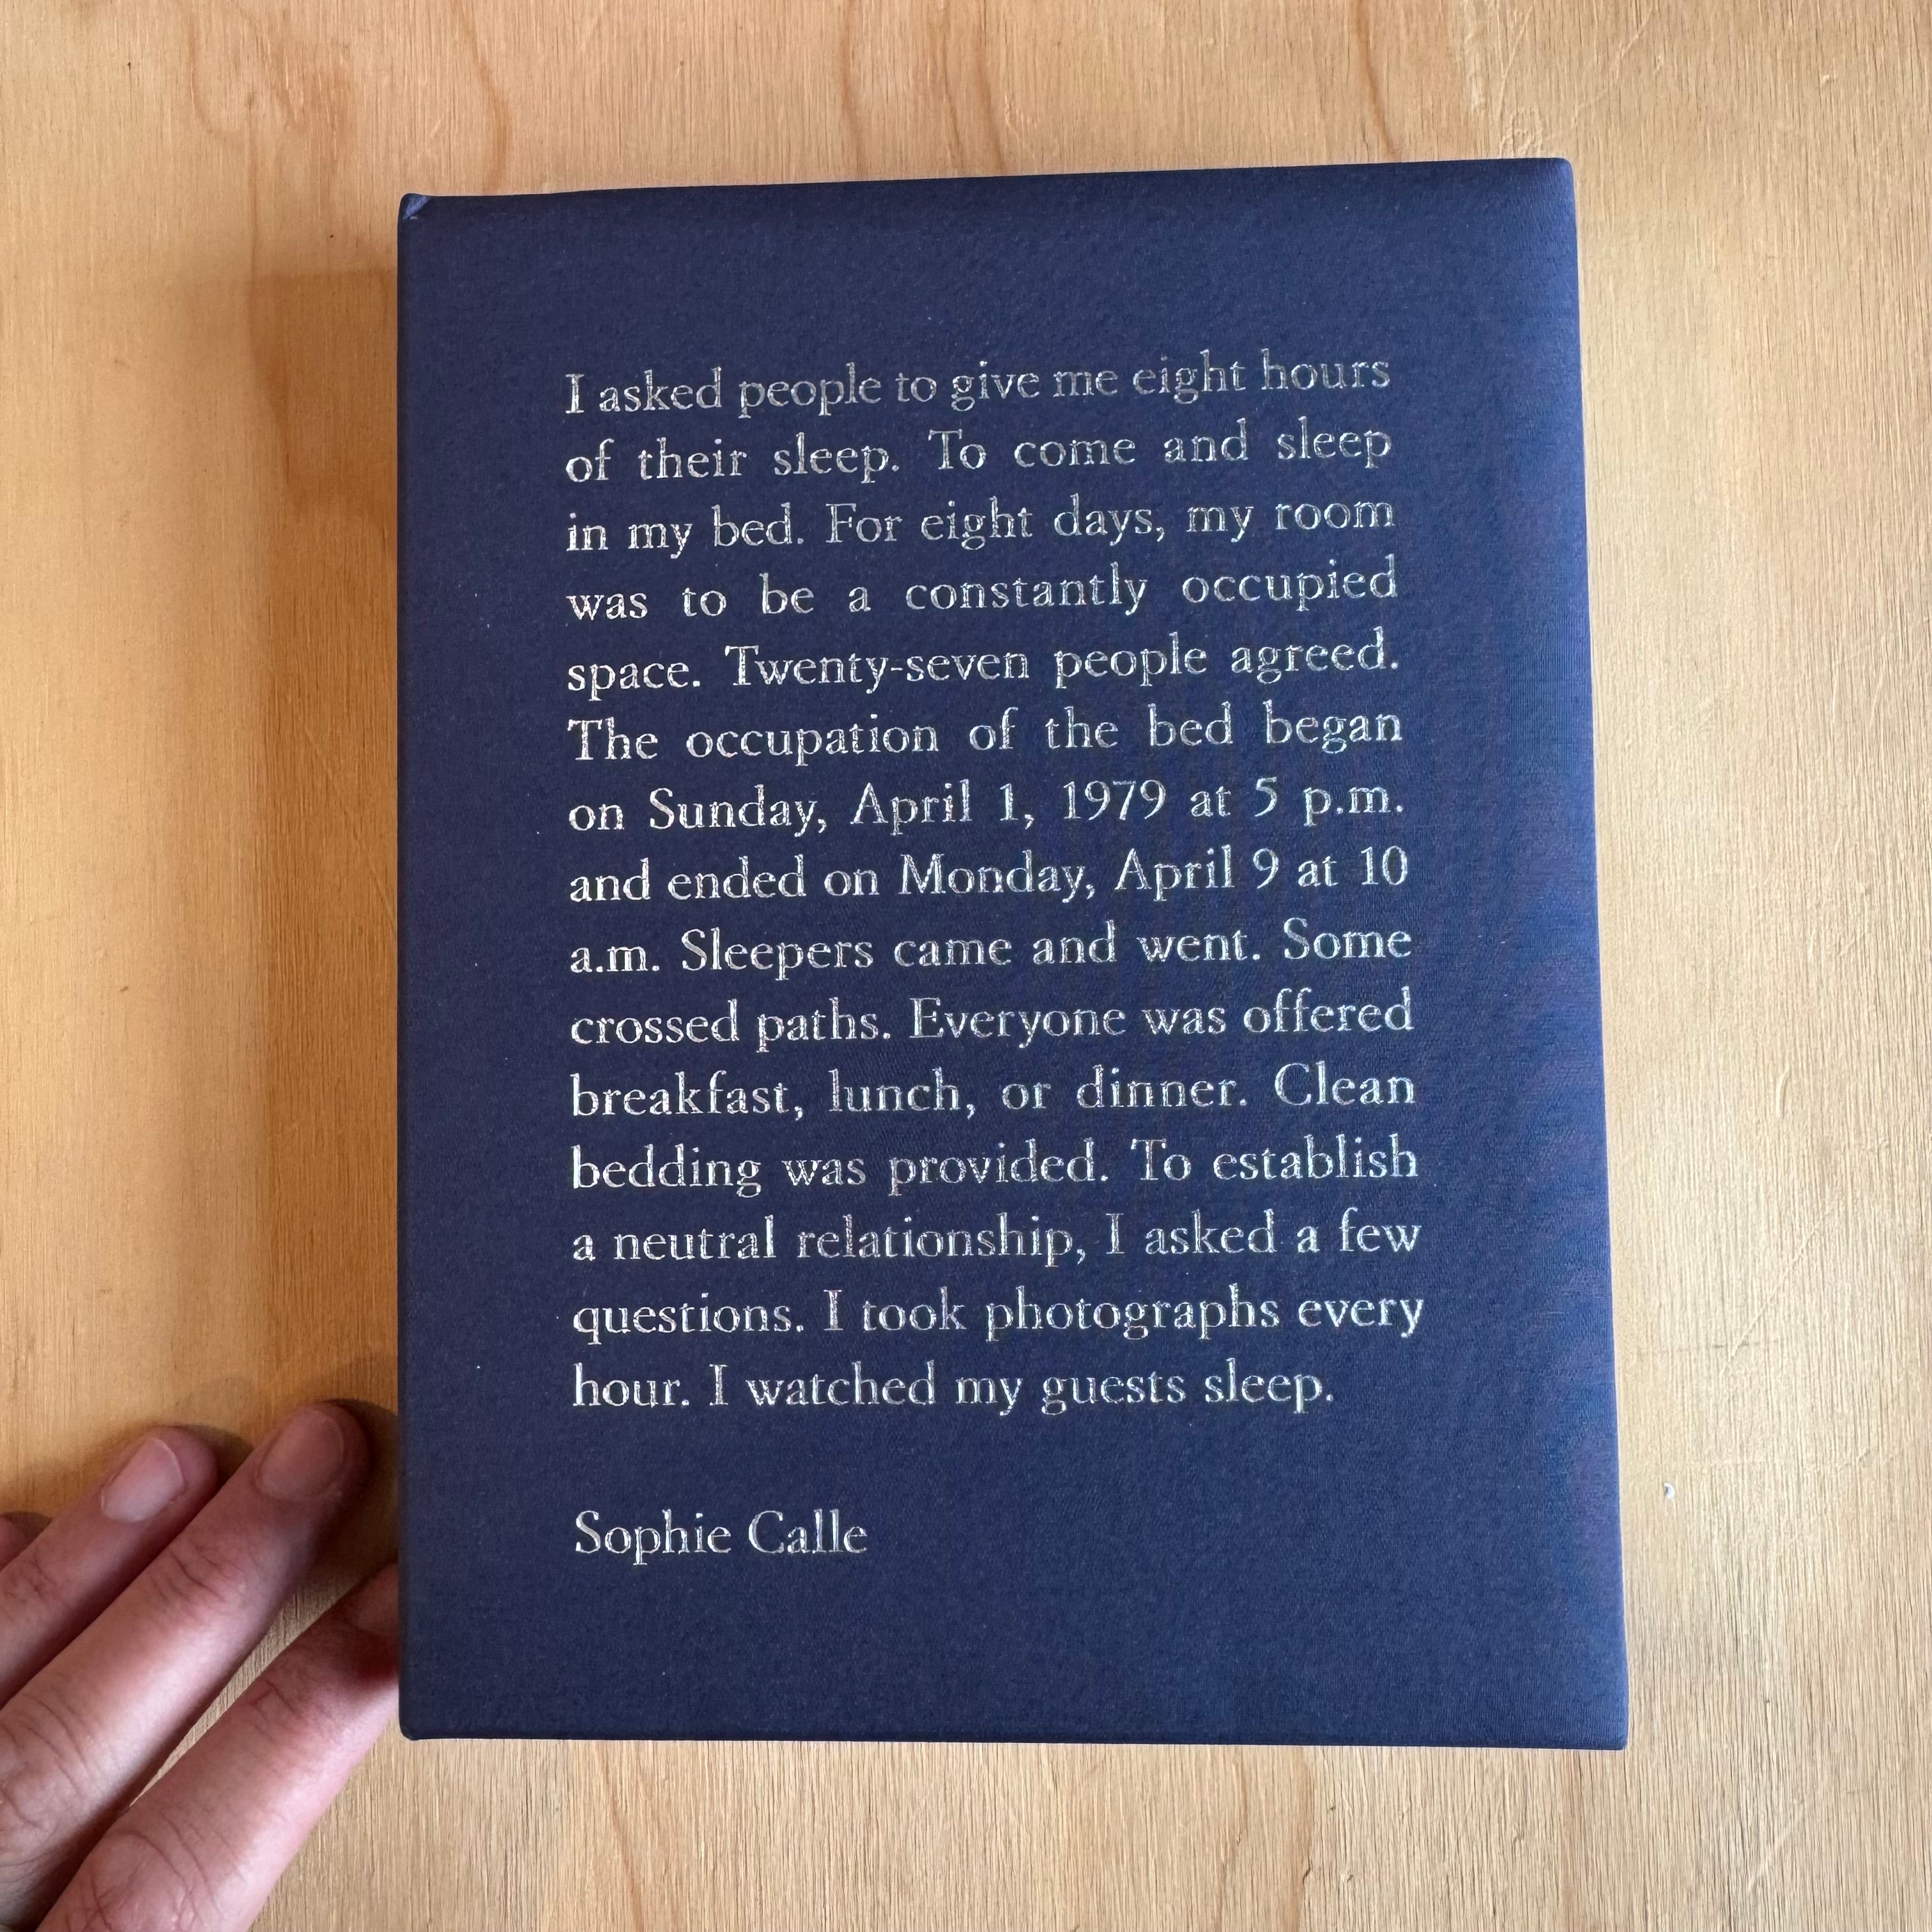 I asked people to give me eight hours
of their sleep. To come and sleep
in my bed. For eight days, my room
was to be a constantly occupied
space. Twenty-seven people agreed.
The occupation of the bed began
on Sunday, April 1, 1979 at 5 p.m.
and ended on Monday, April 9 at 10
a.m. Sleepers came and went. Some
crossed paths. Everyone was offered
breakfast, lunch, or dinner. Clean
bedding was provided. To establish
a neutral relationship, I asked a few
questions. I took photographs every
hour. I watched my guests sleep.
Sophie Calle